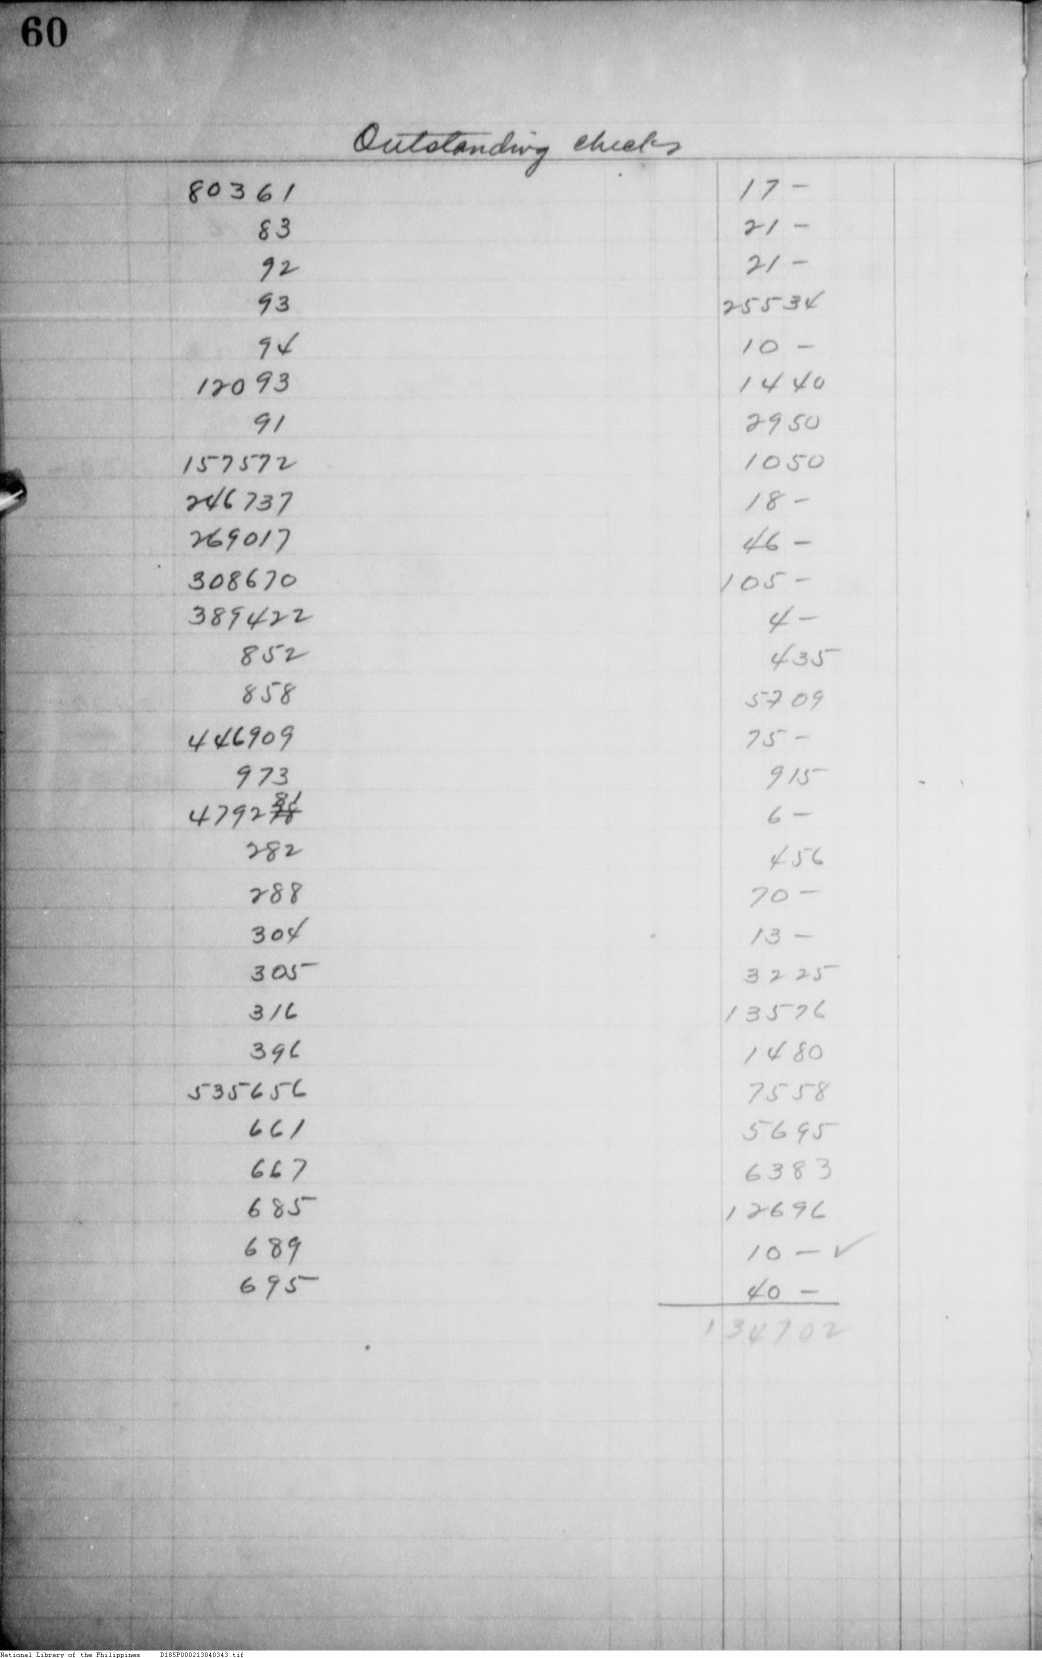 60
Outstanding checks
80361 17 -
83 21 -
92 21 -
93 255 34
94 10 -
12093 14 40
91 29 50
157572 10 50
246737 18 -
269017 46 -
308670 105 -
389422 4 -
852 4 35
858 57 09
446909 75 -
973 9 15
479281 6 -
282 4 56
288 70 -
304 13 -
305 32 25
316 135 76
396 14 80
535656 75 58
661 56 95
667 63 83
685 126 96
689 10 - ✓
695 40 -
1347 02
National Library of the Philippines D185P000213040343.tif